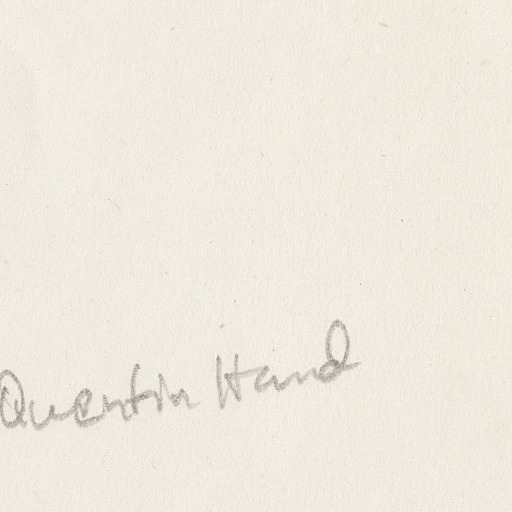 Quentin Hand